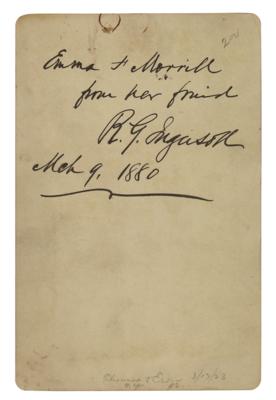 Emma F Morrill
from her friend
R. G. Ingersoll
Mch 9, 1880
3/17/23